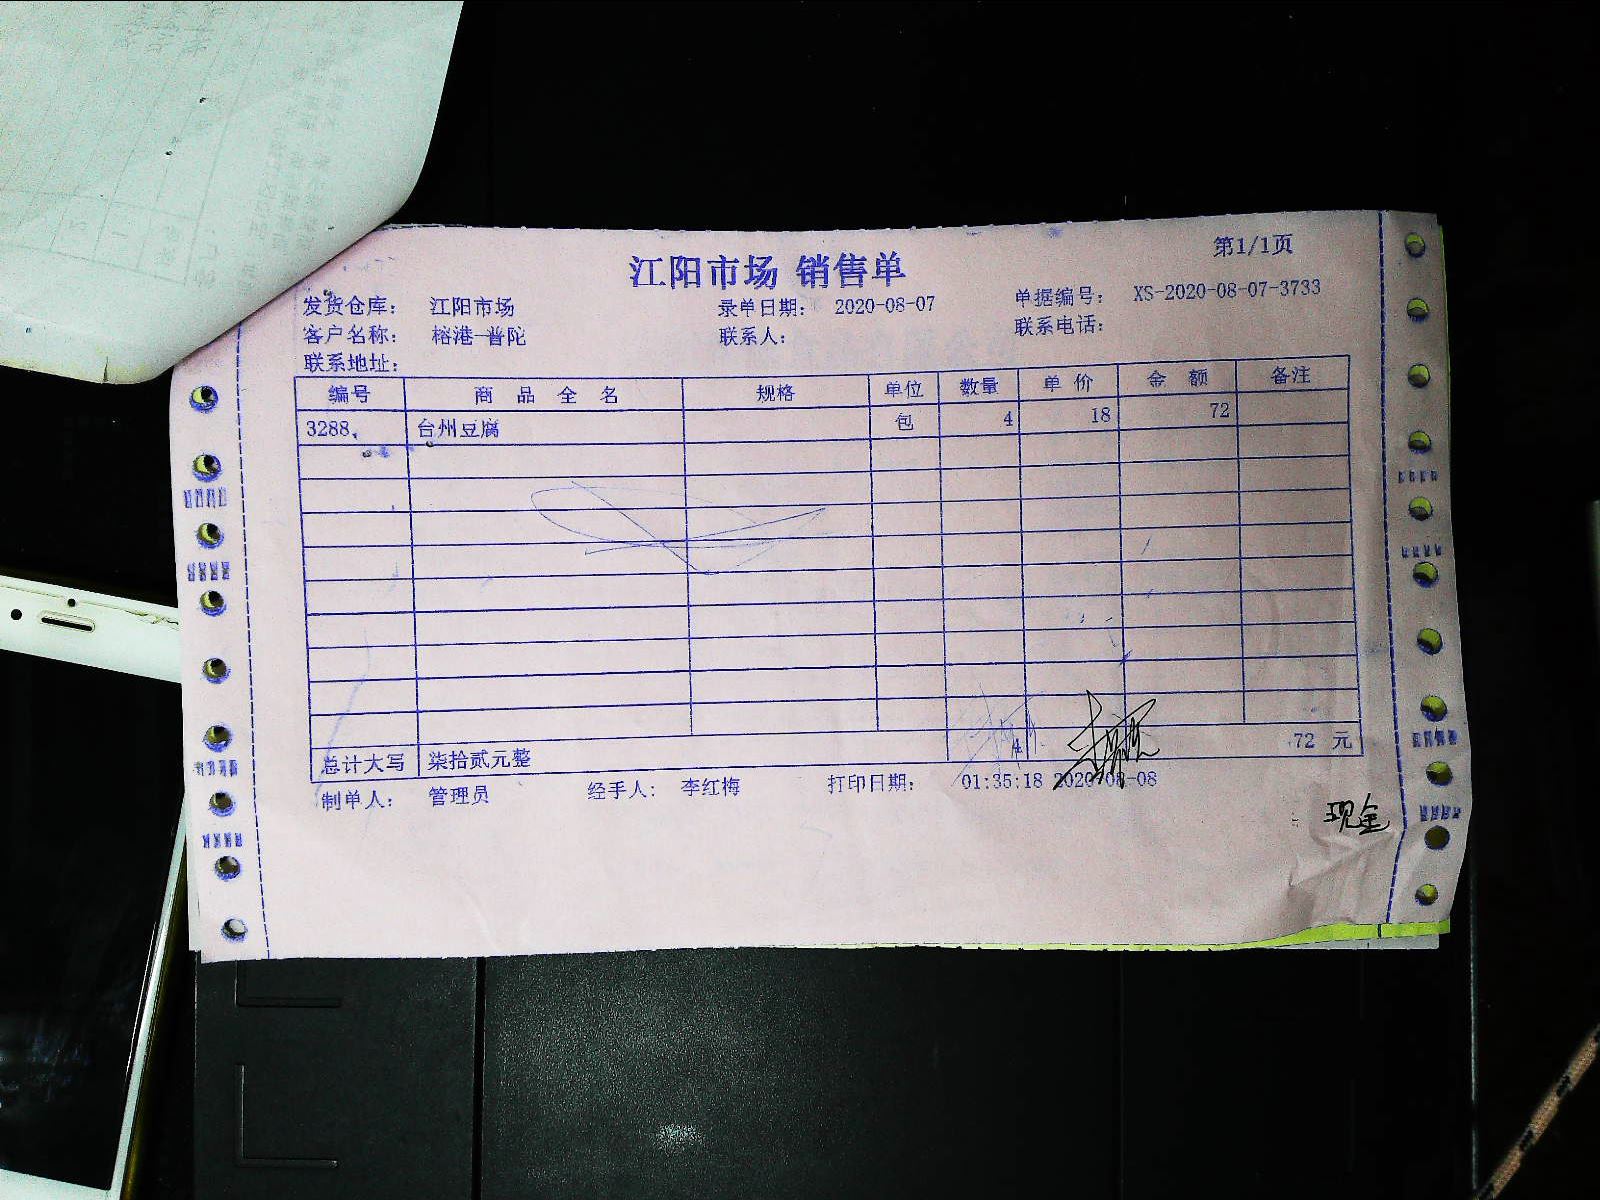 第1/1页
江阳市场 销售单
发货仓库： 江阳市场 录单日期： 2020-08-07 单据编号： XS-2020-08-07-3733
客户名称： 榕港-普陀 联系人： 联系电话：
联系地址：
编号 商品全名 规格 单位 数量 单价 金额 备注
3288、 台州豆腐 包 4 18 72
总计大写 柒拾贰元整 4 72 元
制单人： 管理员 经手人： 李红梅 打印日期： 01:35:18 2020-08-08
现金